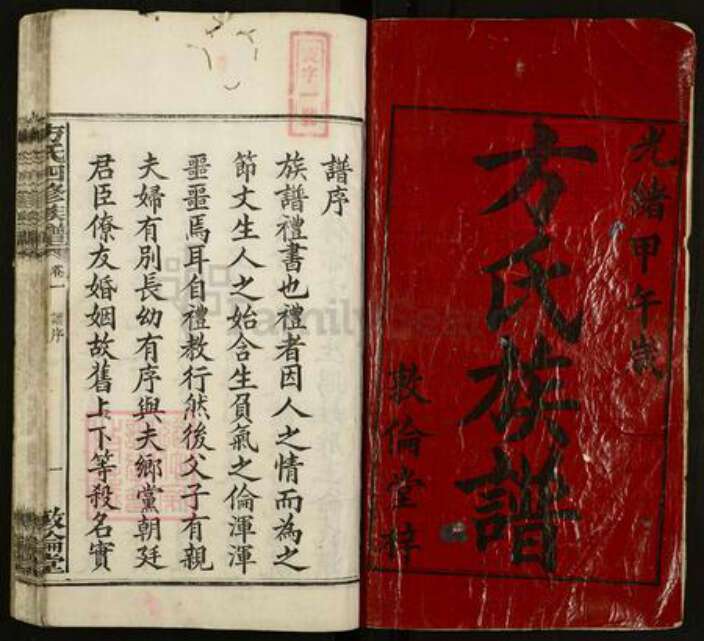 光緒甲午歲
方氏族譜
敦倫堂梓
譜序
族譜禮書也禮者因人之情而為之
節文生人之始含生負氣之倫渾渾
噩噩焉耳自禮教行然後父子有親
夫婦有別長幼有序與夫鄉黨朝廷
君臣僚友婚姻故舊上下等殺名實
方氏四修族譜
卷一
譜序
一
敦倫堂
字一號
FamilySearch